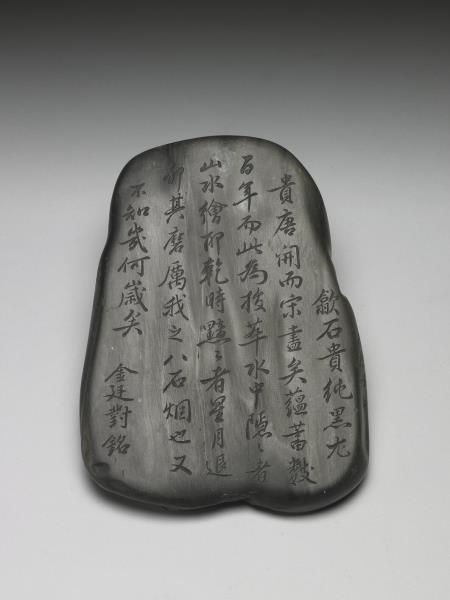 歙石貴純黑尤
貴唐開而宋盡矣蘊蓄數
百年而此為拔萃水中隱〻者
山水繪乾時〻者星月退
其磨厲我之八石烟也又
不知幾何歲矣
金廷對銘